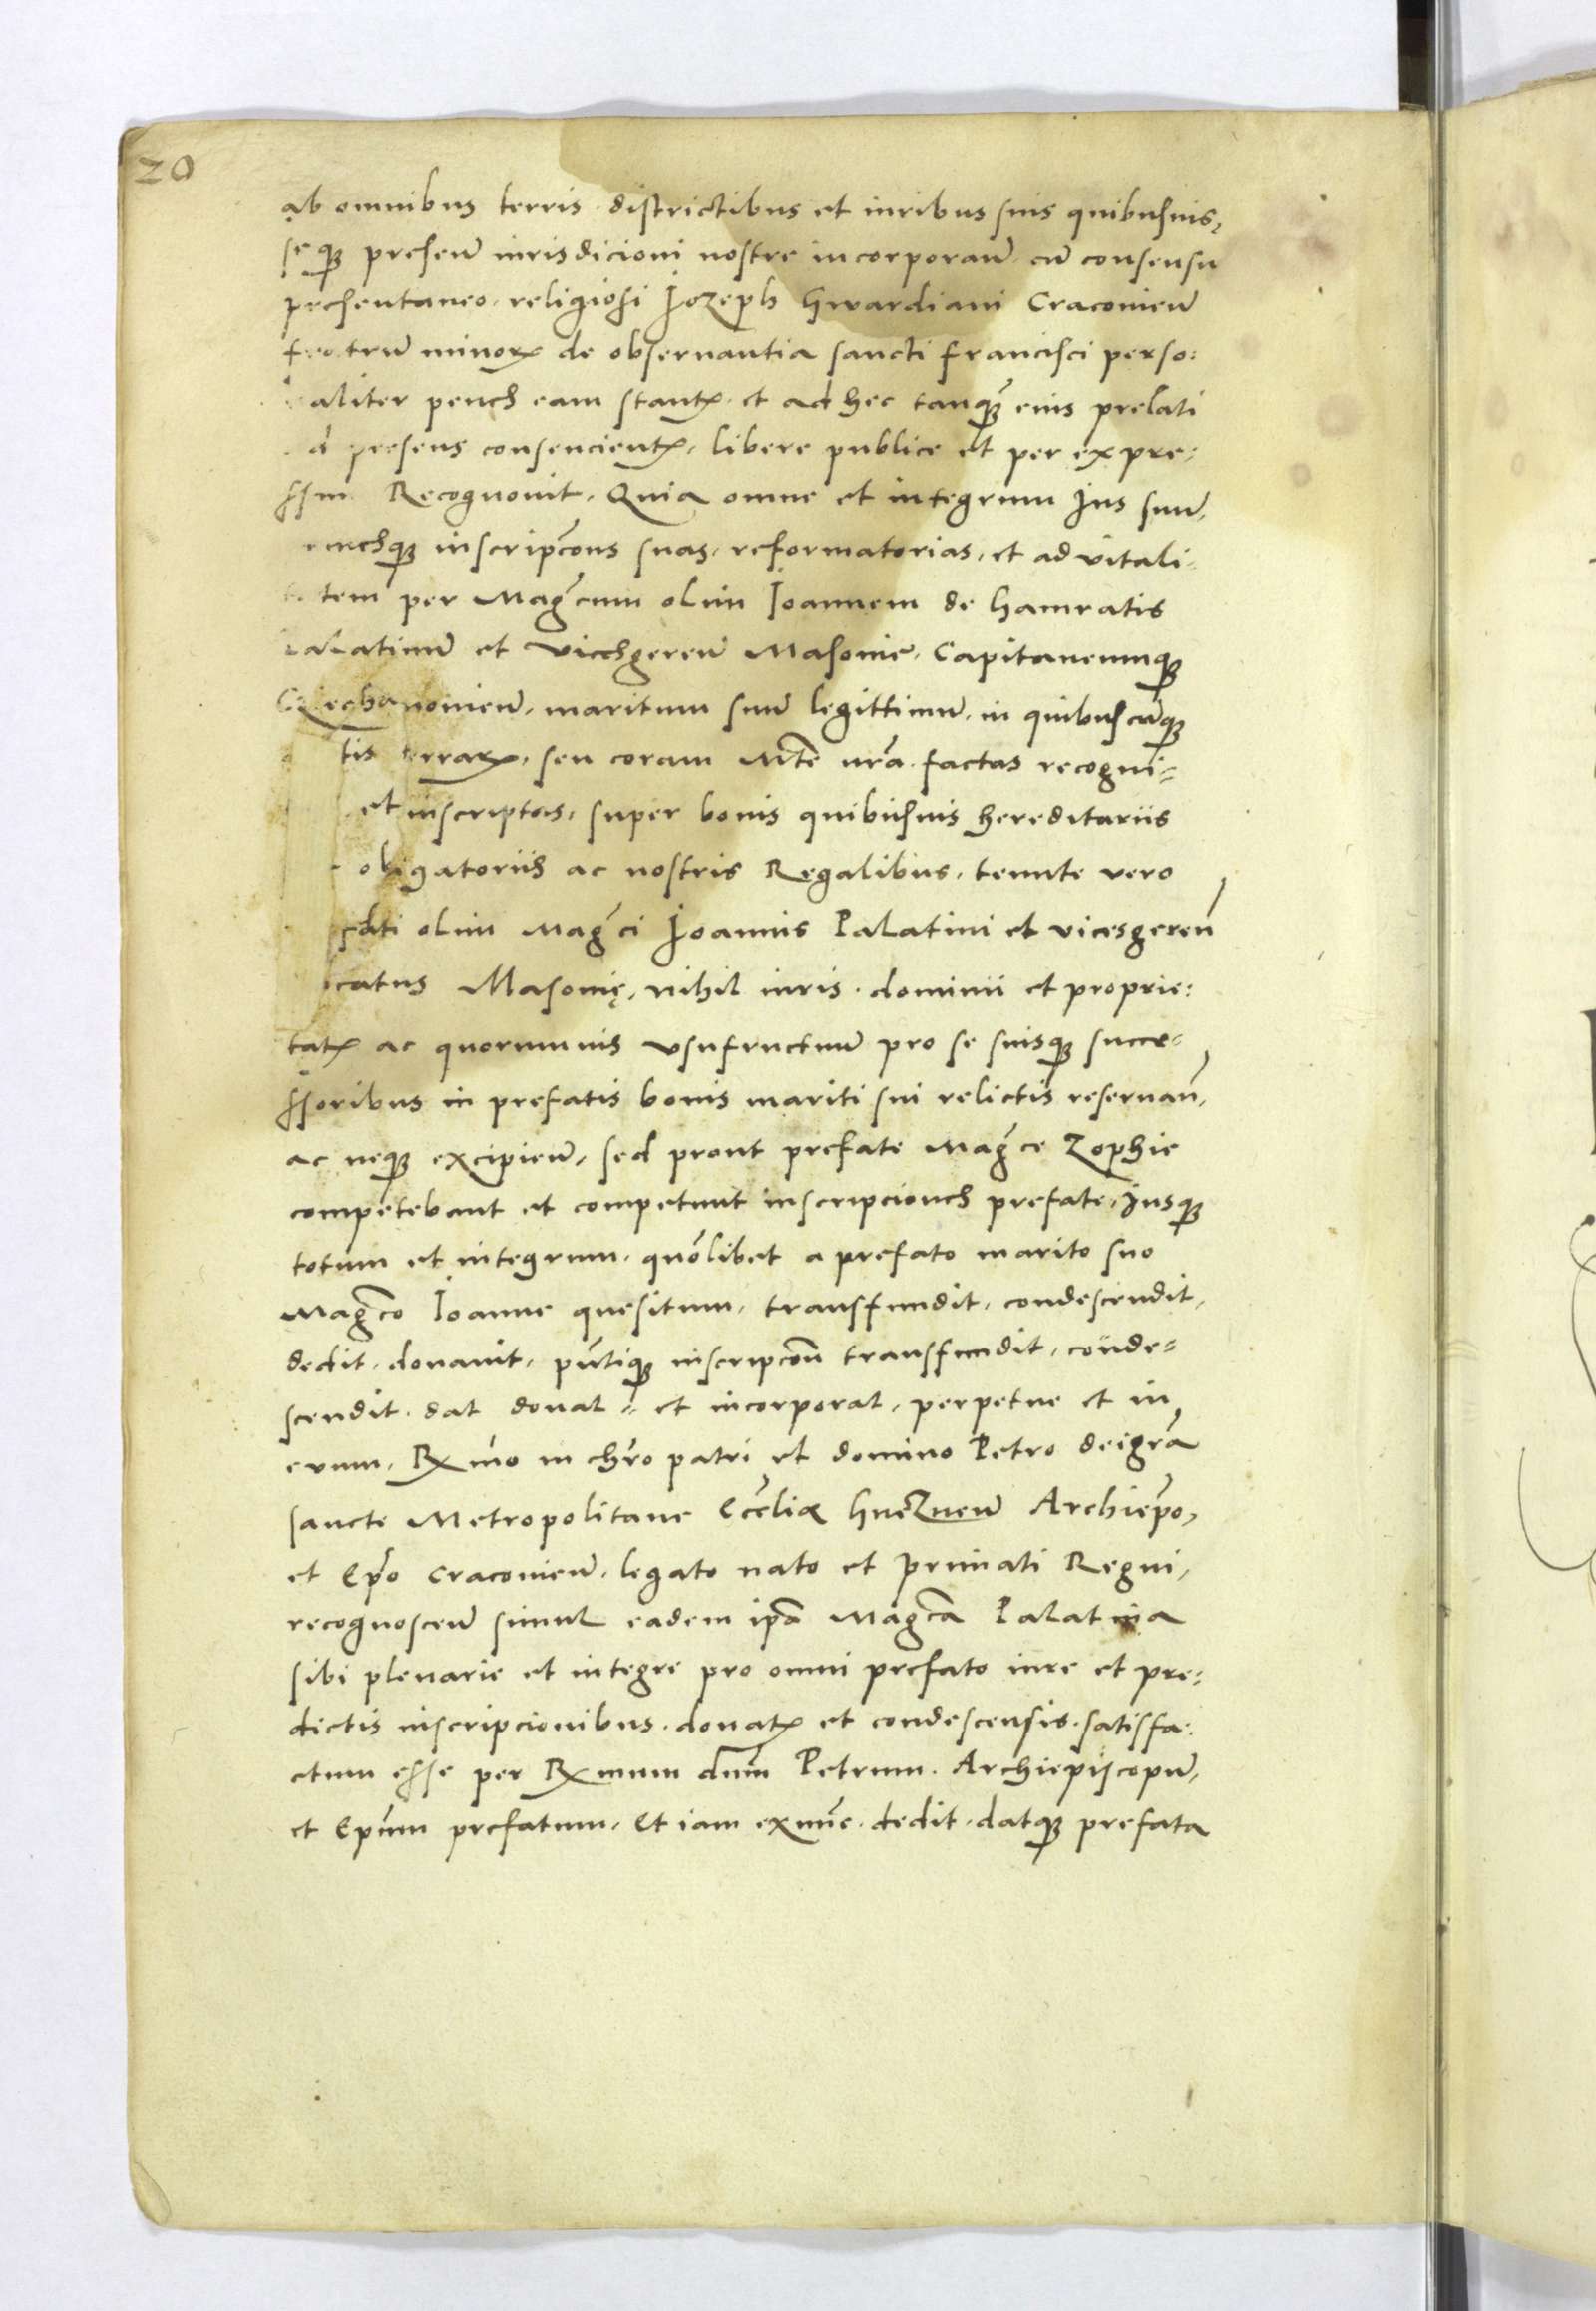 20
ab omnibus terris districtibus et iuribus suis quibusuis,
seq3 preseñ iurisdicioni nostre incorporañ cū consensu
presentaneo religiosi Jozeph Gwardiani Cracouieñ
fratrū minorꝝ de obseruantia sancti francisci perso:
aliter penes eam stantꝭ et ad hec tanq̃3 eius prelati
d presens consencientꝭ, libere publice et per expre:
ssm Recognouit, Quia omne et integrum Jus suū,
omnesq3 inscripc̃ons suas, reformatorias, et ad vitali:
tem per Mag̃cum olim Joannem de Gamratis
palatinū et vicesgereñ Masouie, Capitaneumq3
Czechanouieñ, maritum suū legittimū, in quibuscūq3
tis terrarꝝ, seu coram Mte nr̃a factas recogni=
et inscriptas, super bonis quibusuis hereditariis
obligatoriis ac nostris Regalibus, tenute vero
fati olim Mag̃ci Joannis Palatini et vicesgereñ
catus Masouię, nihil iuris dominii et proprie:
tatꝭ ac quorumuis vsufructuū pro se suisq3 succe=
ssoribus in prefatis bonis mariti sui relictis reseruañ,
ac neq3 excipieñ, sed prout prefate Mag̃ce Zophie
competebant et competunt inscripciones prefate, Jusq3
totum et integrum, quõlibet a prefato marito suo
Mag̃co Joanne quesitum, transfundit, condescendit,
dedit, donauit, pñtiq3 inscripc̃oñ transfundit, conde=
scendit dat donat= et incorporat, perpetue et in
euum, Rꝫmo in chr̃o patri et domino Petro deigr̃a
sancte Metropolitane Ecc̃liæ Gneznen̄ Archiep̃o,
et Ep̃o Cracouieñ, legato nato et primati Regni,
recognosceñ simul eadem ip̃a Mag̃ca Palatina
sibi plenarie et integre pro omni prefato iure et pre:
dictis inscripcionibus donatꝭ et condescensis satisfa:
ctum esse per Rꝫmum dñm Petrum Archiepiscopū,
et Ep̃um prefatum, Et iam exnunc dedit datq3 prefata